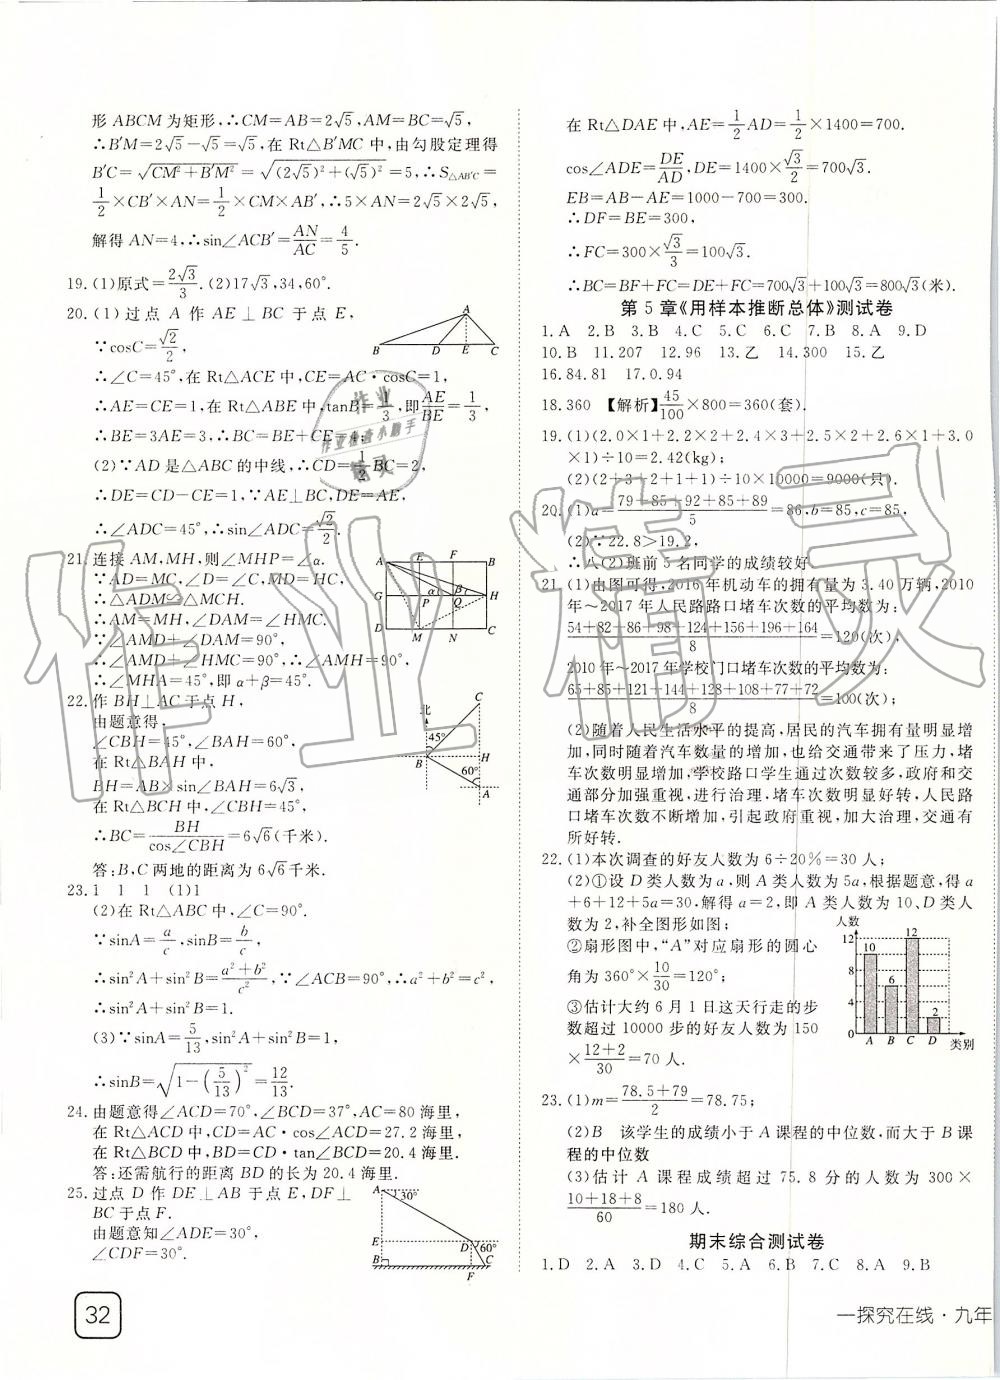 形 ABCM 为矩形,∴CM=AB=2√5,AM=BC=√5,
∴B′M=2√5-√5=√5,在 Rt△B′MC 中,由勾股定理得
B′C=√(CM²+B′M²)=√((2√5)²+(√5)²)=5,∴S△AB′C=
1/2×CB′×AN=1/2×CM×AB′,∴5×AN=2√5×2√5,
解得 AN=4,∴sin∠ACB′=AN/AC=4/5.
19.(1)原式=2√3/3.(2)17√3,34,60°.
20.(1)过点 A 作 AE⊥BC 于点 E,
∵cosC=√2/2,
∴∠C=45°,在 Rt△ACE 中,CE=AC·cosC=1,
∴AE=CE=1,在 Rt△ABE 中,tanB=1/3,即AE/BE=1/3,
∴BE=3AE=3,∴BC=BE+CE=4;
(2)∵AD 是△ABC 的中线,∴CD=1/2BC=2,
∴DE=CD-CE=1,∵AE⊥BC,DE=AE,
∴∠ADC=45°,∴sin∠ADC=√2/2.
21.连接 AM,MH,则∠MHP=∠α.
∵AD=MC,∠D=∠C,MD=HC,
∴△ADM≌△MCH.
∴AM=MH,∠DAM=∠HMC.
∵∠AMD+∠DAM=90°,
∴∠AMD+∠HMC=90°,∴∠AMH=90°.
∴∠MHA=45°,即 α+β=45°.
22.作 BH⊥AC 于点 H,
由题意得,
∠CBH=45°,∠BAH=60°,
在 Rt△BAH 中,
BH=AB×sin∠BAH=6√3,
在 Rt△BCH 中,∠CBH=45°,
∴BC=BH/cos∠CBH=6√6(千米).
答:B,C 两地的距离为 6√6千米.
23.1 1 1 (1)1
(2)在 Rt△ABC 中,∠C=90°.
∵sinA=a/c,sinB=b/c,
∴sin²A+sin²B=(a²+b²)/c²,∵∠ACB=90°,∴a²+b²=c²,
∴sin²A+sin²B=1.
(3)∵sinA=5/13,sin²A+sin²B=1,
∴sinB=√(1-(5/13)²)=12/13.
24.由题意得∠ACD=70°,∠BCD=37°,AC=80 海里,
在 Rt△ACD 中,CD=AC·cos∠ACD=27.2 海里,
在 Rt△BCD 中,BD=CD·tan∠BCD=20.4 海里.
答:还需航行的距离 BD 的长为 20.4 海里.
25.过点 D 作 DE⊥AB 于点 E,DF⊥
BC 于点 F.
由题意知∠ADE=30°,
∠CDF=30°.
A
B D E C
A E F B
G α β H
P Q
D M N C
北 C
45°
B H
60°
A
A 30°
E D 60°
B F C
32
在 Rt△DAE 中,AE=1/2AD=1/2×1400=700.
cos∠ADE=DE/AD,DE=1400×√3/2=700√3.
EB=AB-AE=1000-700=300.
∴DF=BE=300,
∴FC=300×√3/3=100√3.
∴BC=BF+FC=DE+FC=700√3+100√3=800√3(米).
第 5 章《用样本推断总体》测试卷
1.A 2.B 3.B 4.C 5.C 6.C 7.B 8.A 9.D
10.B 11.207 12.96 13.乙 14.300 15.乙
16.84.81 17.0.94
18.360 【解析】45/100×800=360(套).
19.(1)(2.0×1+2.2×2+2.4×3+2.5×2+2.6×1+3.0
×1)÷10=2.42(kg);
(2)(2+3+2+1+1)÷10×10000=9000(只).
20.(1)a=(79+85+92+85+89)/5=86,b=85,c=85,
(2)∵22.8>19.2,
∴八(2)班前 5 名同学的成绩较好
21.(1)由图可得,2016 年机动车的拥有量为 3.40 万辆,2010
年~2017 年人民路路口堵车次数的平均数为:
(54+82+86+98+124+156+196+164)/8=120(次),
2010 年~2017 年学校门口堵车次数的平均数为:
(65+85+121+144+128+108+77+72)/8=100(次);
(2)随着人民生活水平的提高,居民的汽车拥有量明显增
加,同时随着汽车数量的增加,也给交通带来了压力,堵
车次数明显增加,学校路口学生通过次数较多,政府和交
通部分加强重视,进行治理,堵车次数明显好转,人民路
口堵车次数不断增加,引起政府重视,加大治理,交通有
所好转.
22.(1)本次调查的好友人数为 6÷20%=30 人;
(2)①设 D 类人数为 a,则 A 类人数为 5a,根据题意,得 a
+6+12+5a=30,解得 a=2,即 A 类人数为 10、D 类人
数为 2,补全图形如图;
②扇形图中,“A”对应扇形的圆心
角为 360°×10/30=120°;
③估计大约 6 月 1 日这天行走的步
数超过 10000 步的好友人数为 150
×(12+2)/30=70 人.
人数
12 10 12
8 6
4 2
0 A B C D 类别
23.(1)m=(78.5+79)/2=78.75;
(2)B 该学生的成绩小于 A 课程的中位数,而大于 B 课
程的中位数
(3)估计 A 课程成绩超过 75.8 分的人数为 300×
(10+18+8)/60=180 人.
期末综合测试卷
1.D 2.A 3.D 4.C 5.A 6.B 7.C 8.A 9.B
一探究在线·九年
作业精灵
作业
作业检查小助手
精灵